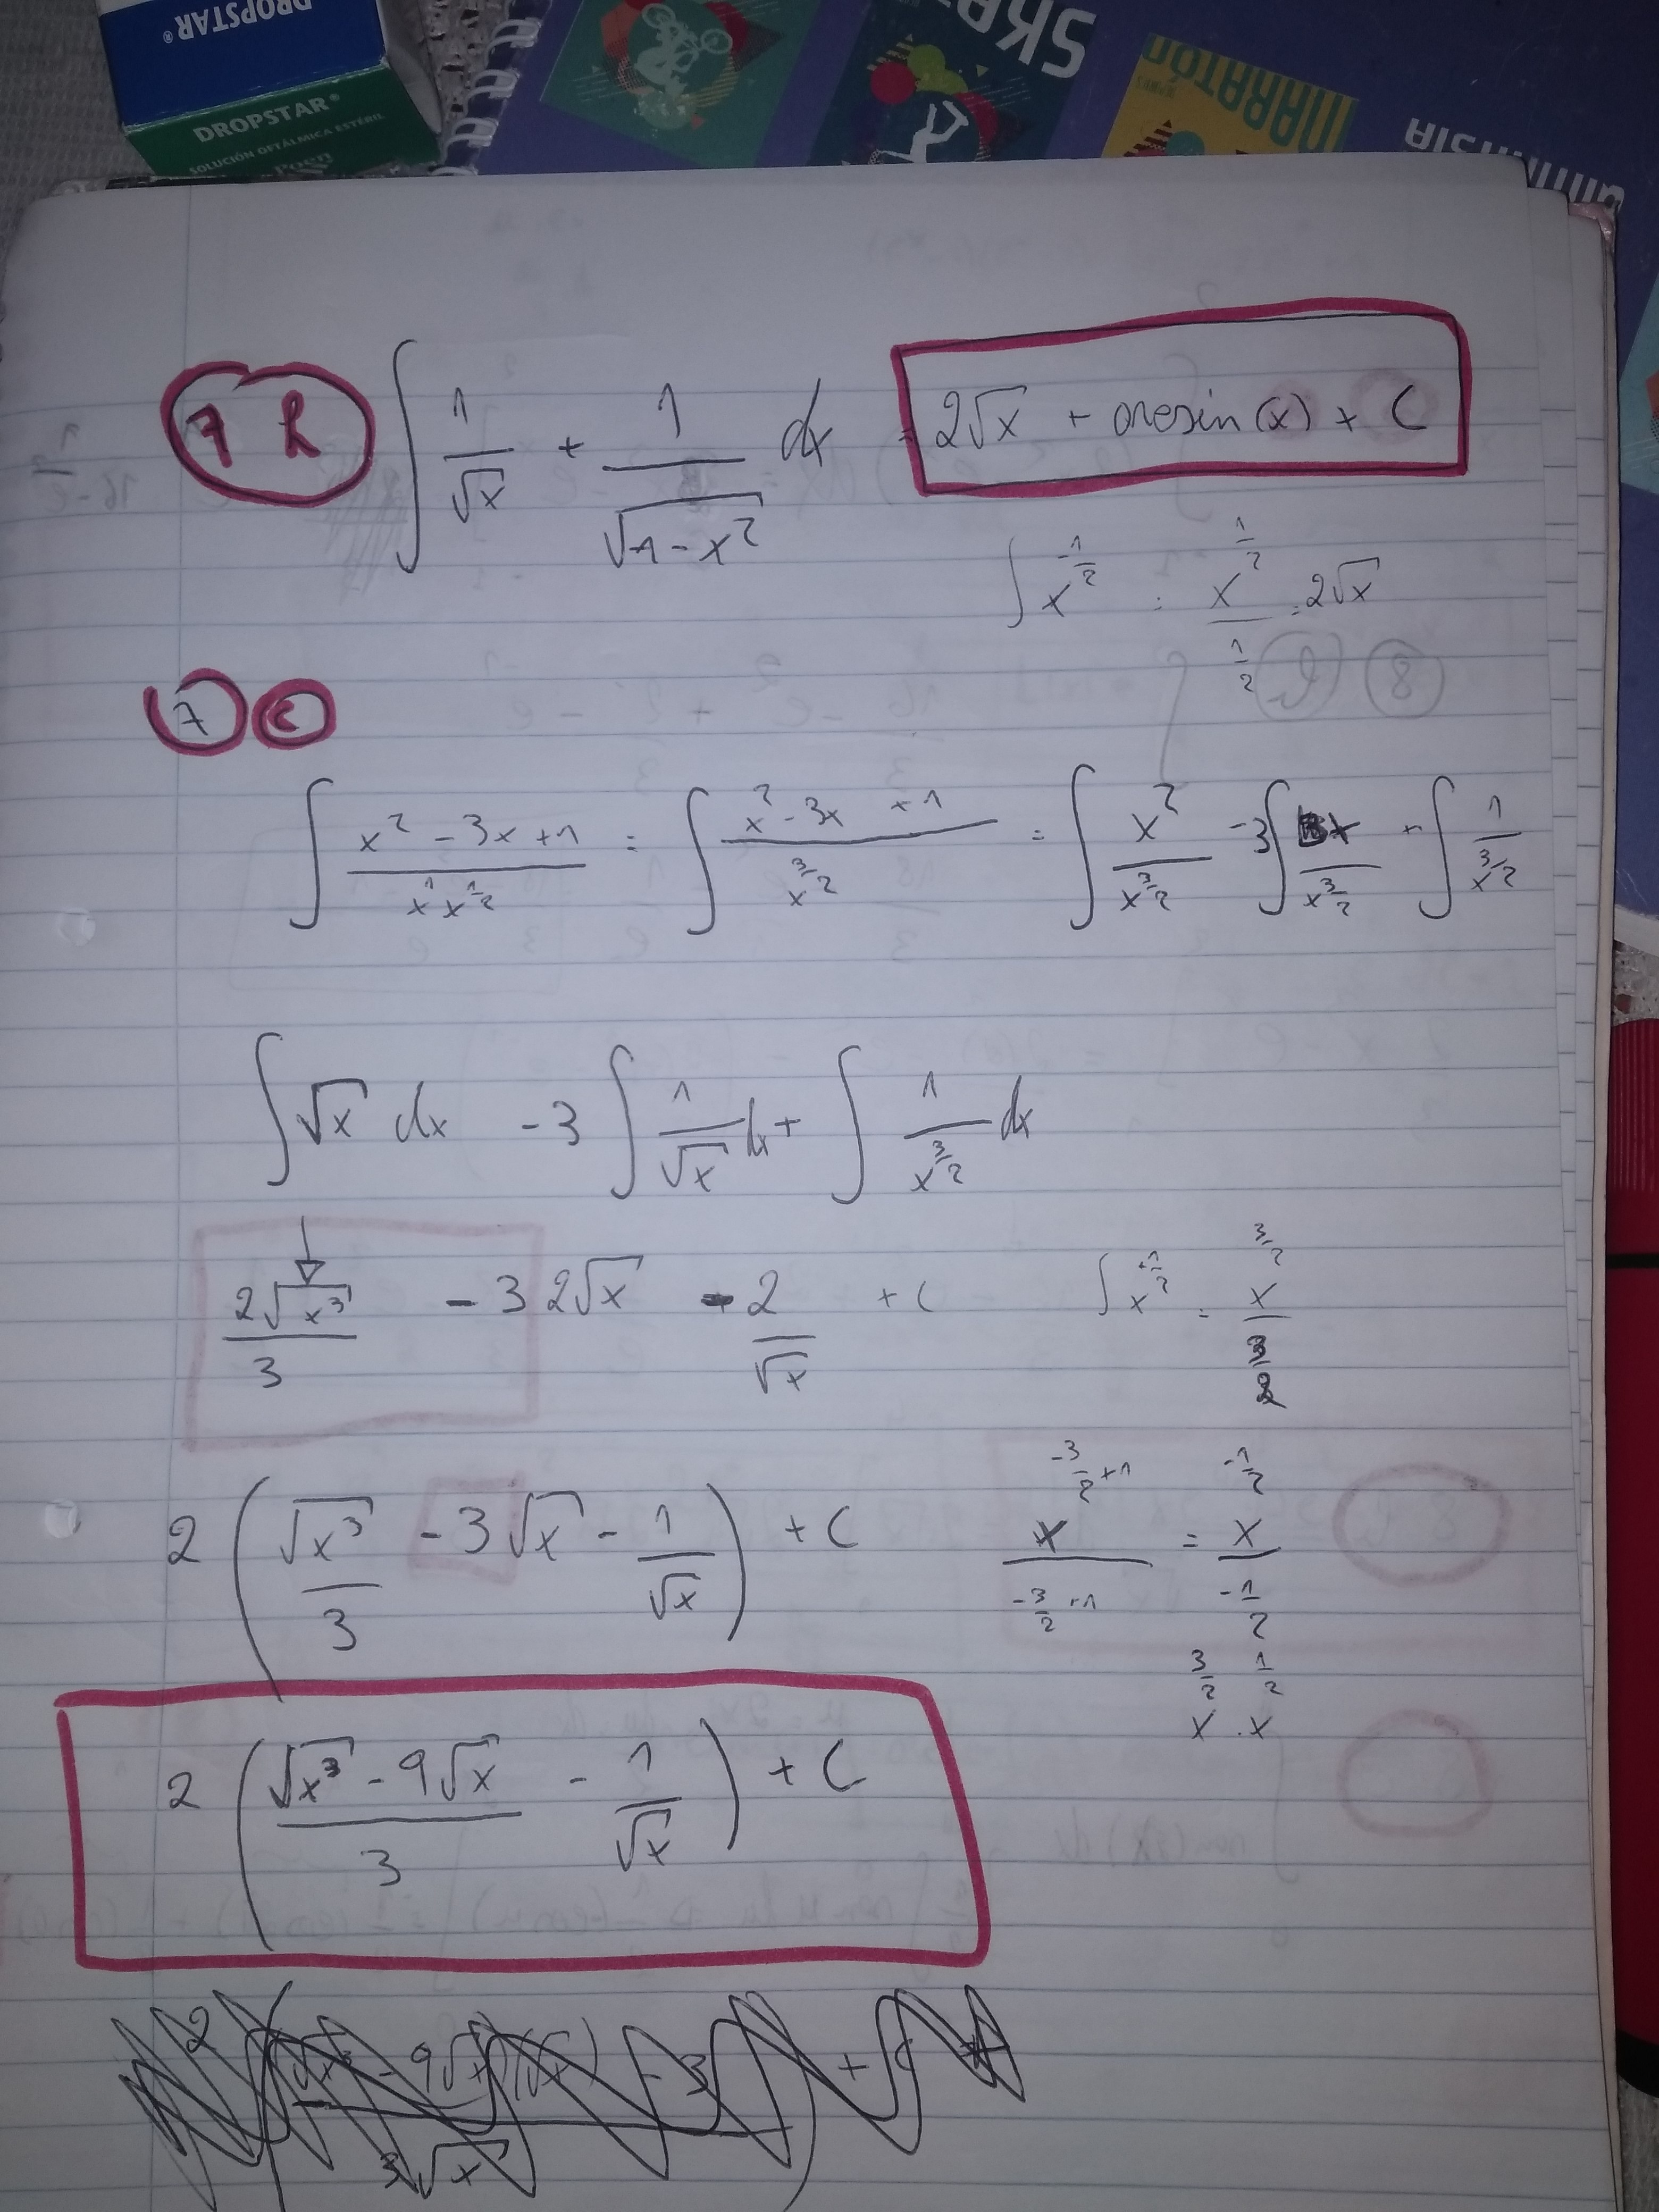 DROPSTAR®
DROPSTAR®
SOLUCIÓN OFTÁLMICA ESTÉRIL
Poen
MARATON
7 h ∫ 1/√x + 1/√(1-x²) dx = 2√x + arcsin(x) + C
∫ x^(-1/2) = x^(1/2) / (1/2) = 2√x
7 c
∫ (x² - 3x + 1)/(x¹ x^(1/2)) = ∫ (x² - 3x + 1)/x^(3/2) = ∫ x²/x^(3/2) - 3 ∫ x/x^(3/2) + ∫ 1/x^(3/2)
∫ √x dx - 3 ∫ 1/√x dx + ∫ 1/x^(3/2) dx
2√x³/3 - 3 2√x - 2/√x + C
∫ x^(+1/2) = x^(3/2) / (3/2)
2 ( √x³/3 - 3√x - 1/√x ) + C
x^(-3/2+1) / (-3/2+1) = x^(-1/2) / (-1/2)
x^(3/2) . x^(1/2)
2 ( (√x³ - 9√x)/3 - 1/√x ) + C